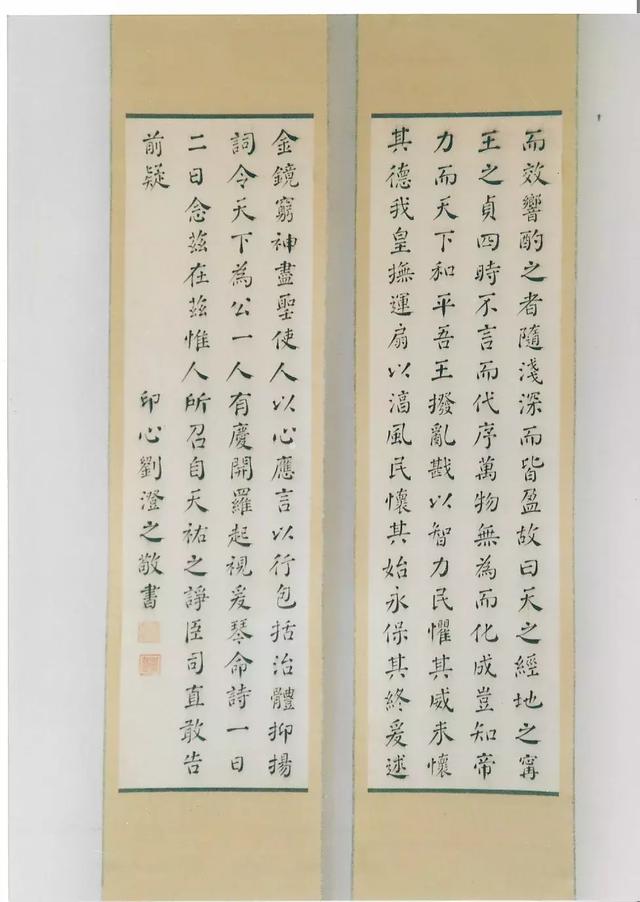 而效響酌之者隨淺深而皆盈故曰天之經地之甯
王之貞四時不言而代序萬物無為而化成豈知帝
力而天下和平吾王撥亂戡以智力民懼其威未懷
其德我皇撫運扇以湻風民懷其始永保其終爰述
金鏡窮神盡聖使人以心應言以行包括治體抑揚
詞令天下為公一人有慶開羅起視爰琴命詩一日
二日念茲在茲惟人所召自天祐之諍臣司直敢告
前疑
印心劉澄之敬書